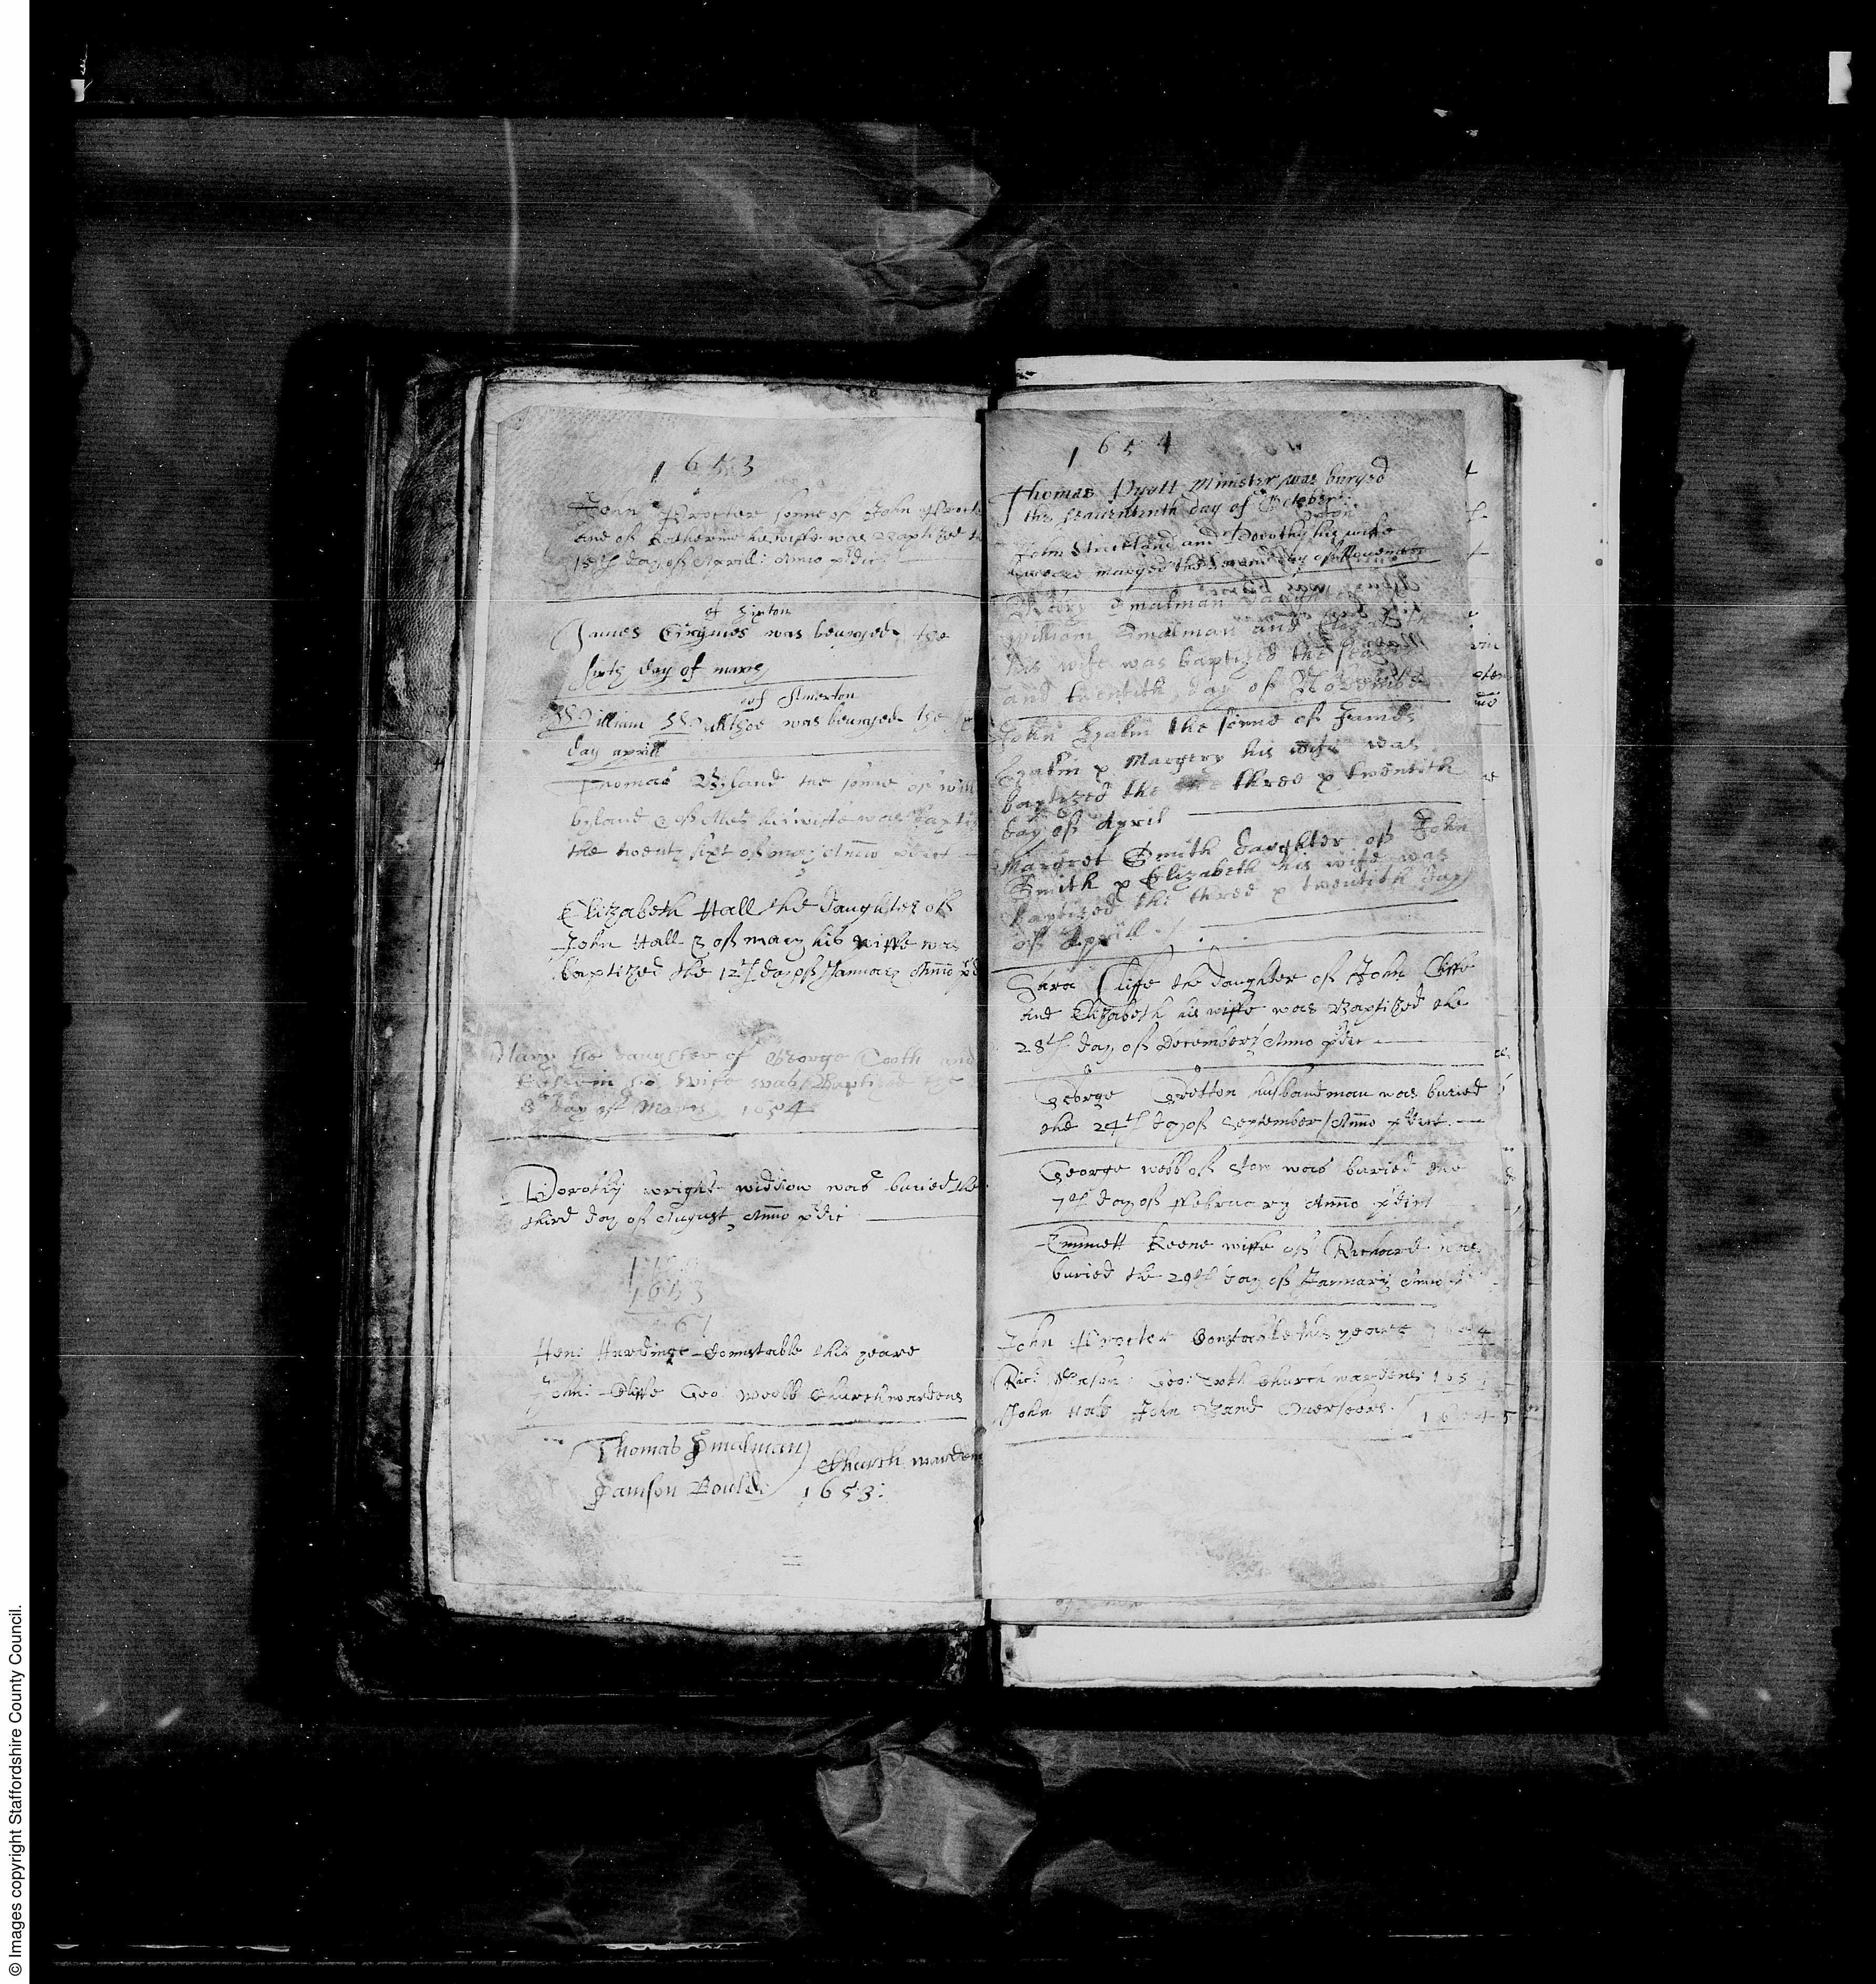 1653
John Procter sonne of John Procte
and of Katherine his wiffe was Baptized th
15th day off Aprill: Anno pdic
of Hixton
James was beuryed the
day of
off Amerton
William was beuryed the
day aprill
Thomas Byland the sonne of will
byland & off his wiffe was bapti
the twenty sixt of may Anno pdict
Elizabeth Hall the daughter off
John Hall & off mary his wiffe was
baptized the 12th day off January Anno pd
Mary the daughter of George Tooth and
his wife was Baptized the
8 day of March 1654
Dorothy wright widdow was buried the
third day of August Anno pdic
1653
Hen: Hardinge Connstable this yeare
John: Cliffe Geo: Webb Churchwardens
Thomas Smalman
Samson Bould: Church warden
1653:
1654
Thomas Pyott Minister was buryed
the seauenteenth day of October:
John Strickland and Dorothy his wife
weare maryed the day of November
Mary Smalman daughter
William Smalman and Elizabeth
his wife was baptized the
and twentith day of November
John the sonne of James
p Margery his wife was
baptized the three p twentith
day off April
Margret Smith daughter of John
Smith p Elizabeth his wife was
baptized the three p twentith day
of Aprill
Sara Cliffe the daughter of John Cliffe
and Elizabeth his wiffe was Baptized the
28th day off December Anno pdic
George Gretton husbandman was buried
the 24th day off September Anno pdict.
George webb off Stow was buried the
7th day off ffebruary Anno pdict
Emmett Keene wiffe off Richard was
buried the 29th day off January Anno
John Procter Constable this yeare 1654
Ric: Geo: Tooth Church wardens 165
John John Overseers 1654
© Images copyright Staffordshire County Council.